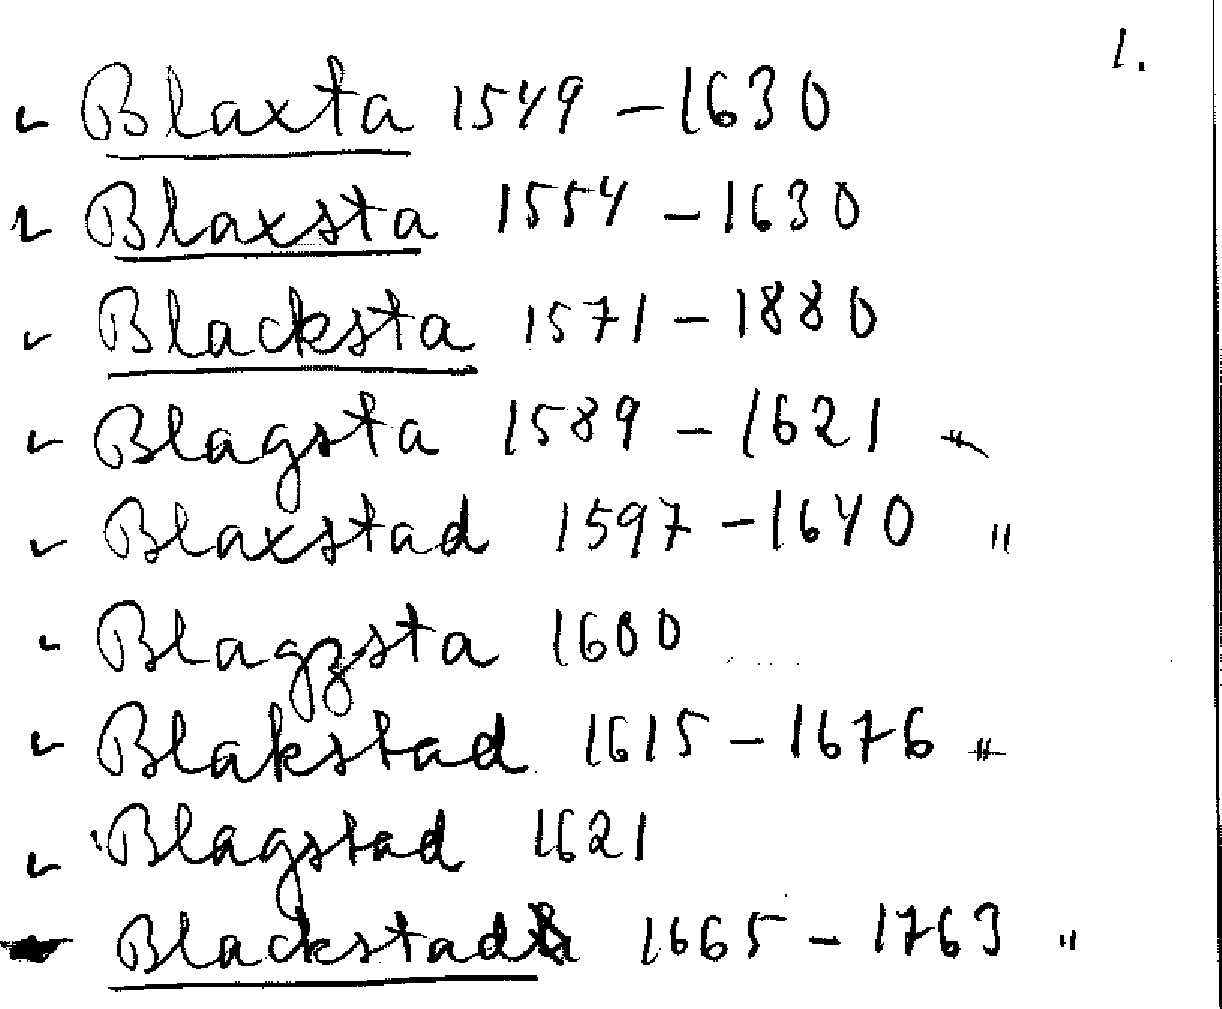 1.
Blaxta 1549 – 1630
Blaxsta 1554 – 1630
Blacksta 1571 – 1880
Blagsta 1589 – 1621
Blaxstad 1597 – 1640 "
Blagzsta 1600
Blakstad 1615 – 1676
Blagstad 1621
Blackstad 1665 – 1763 "